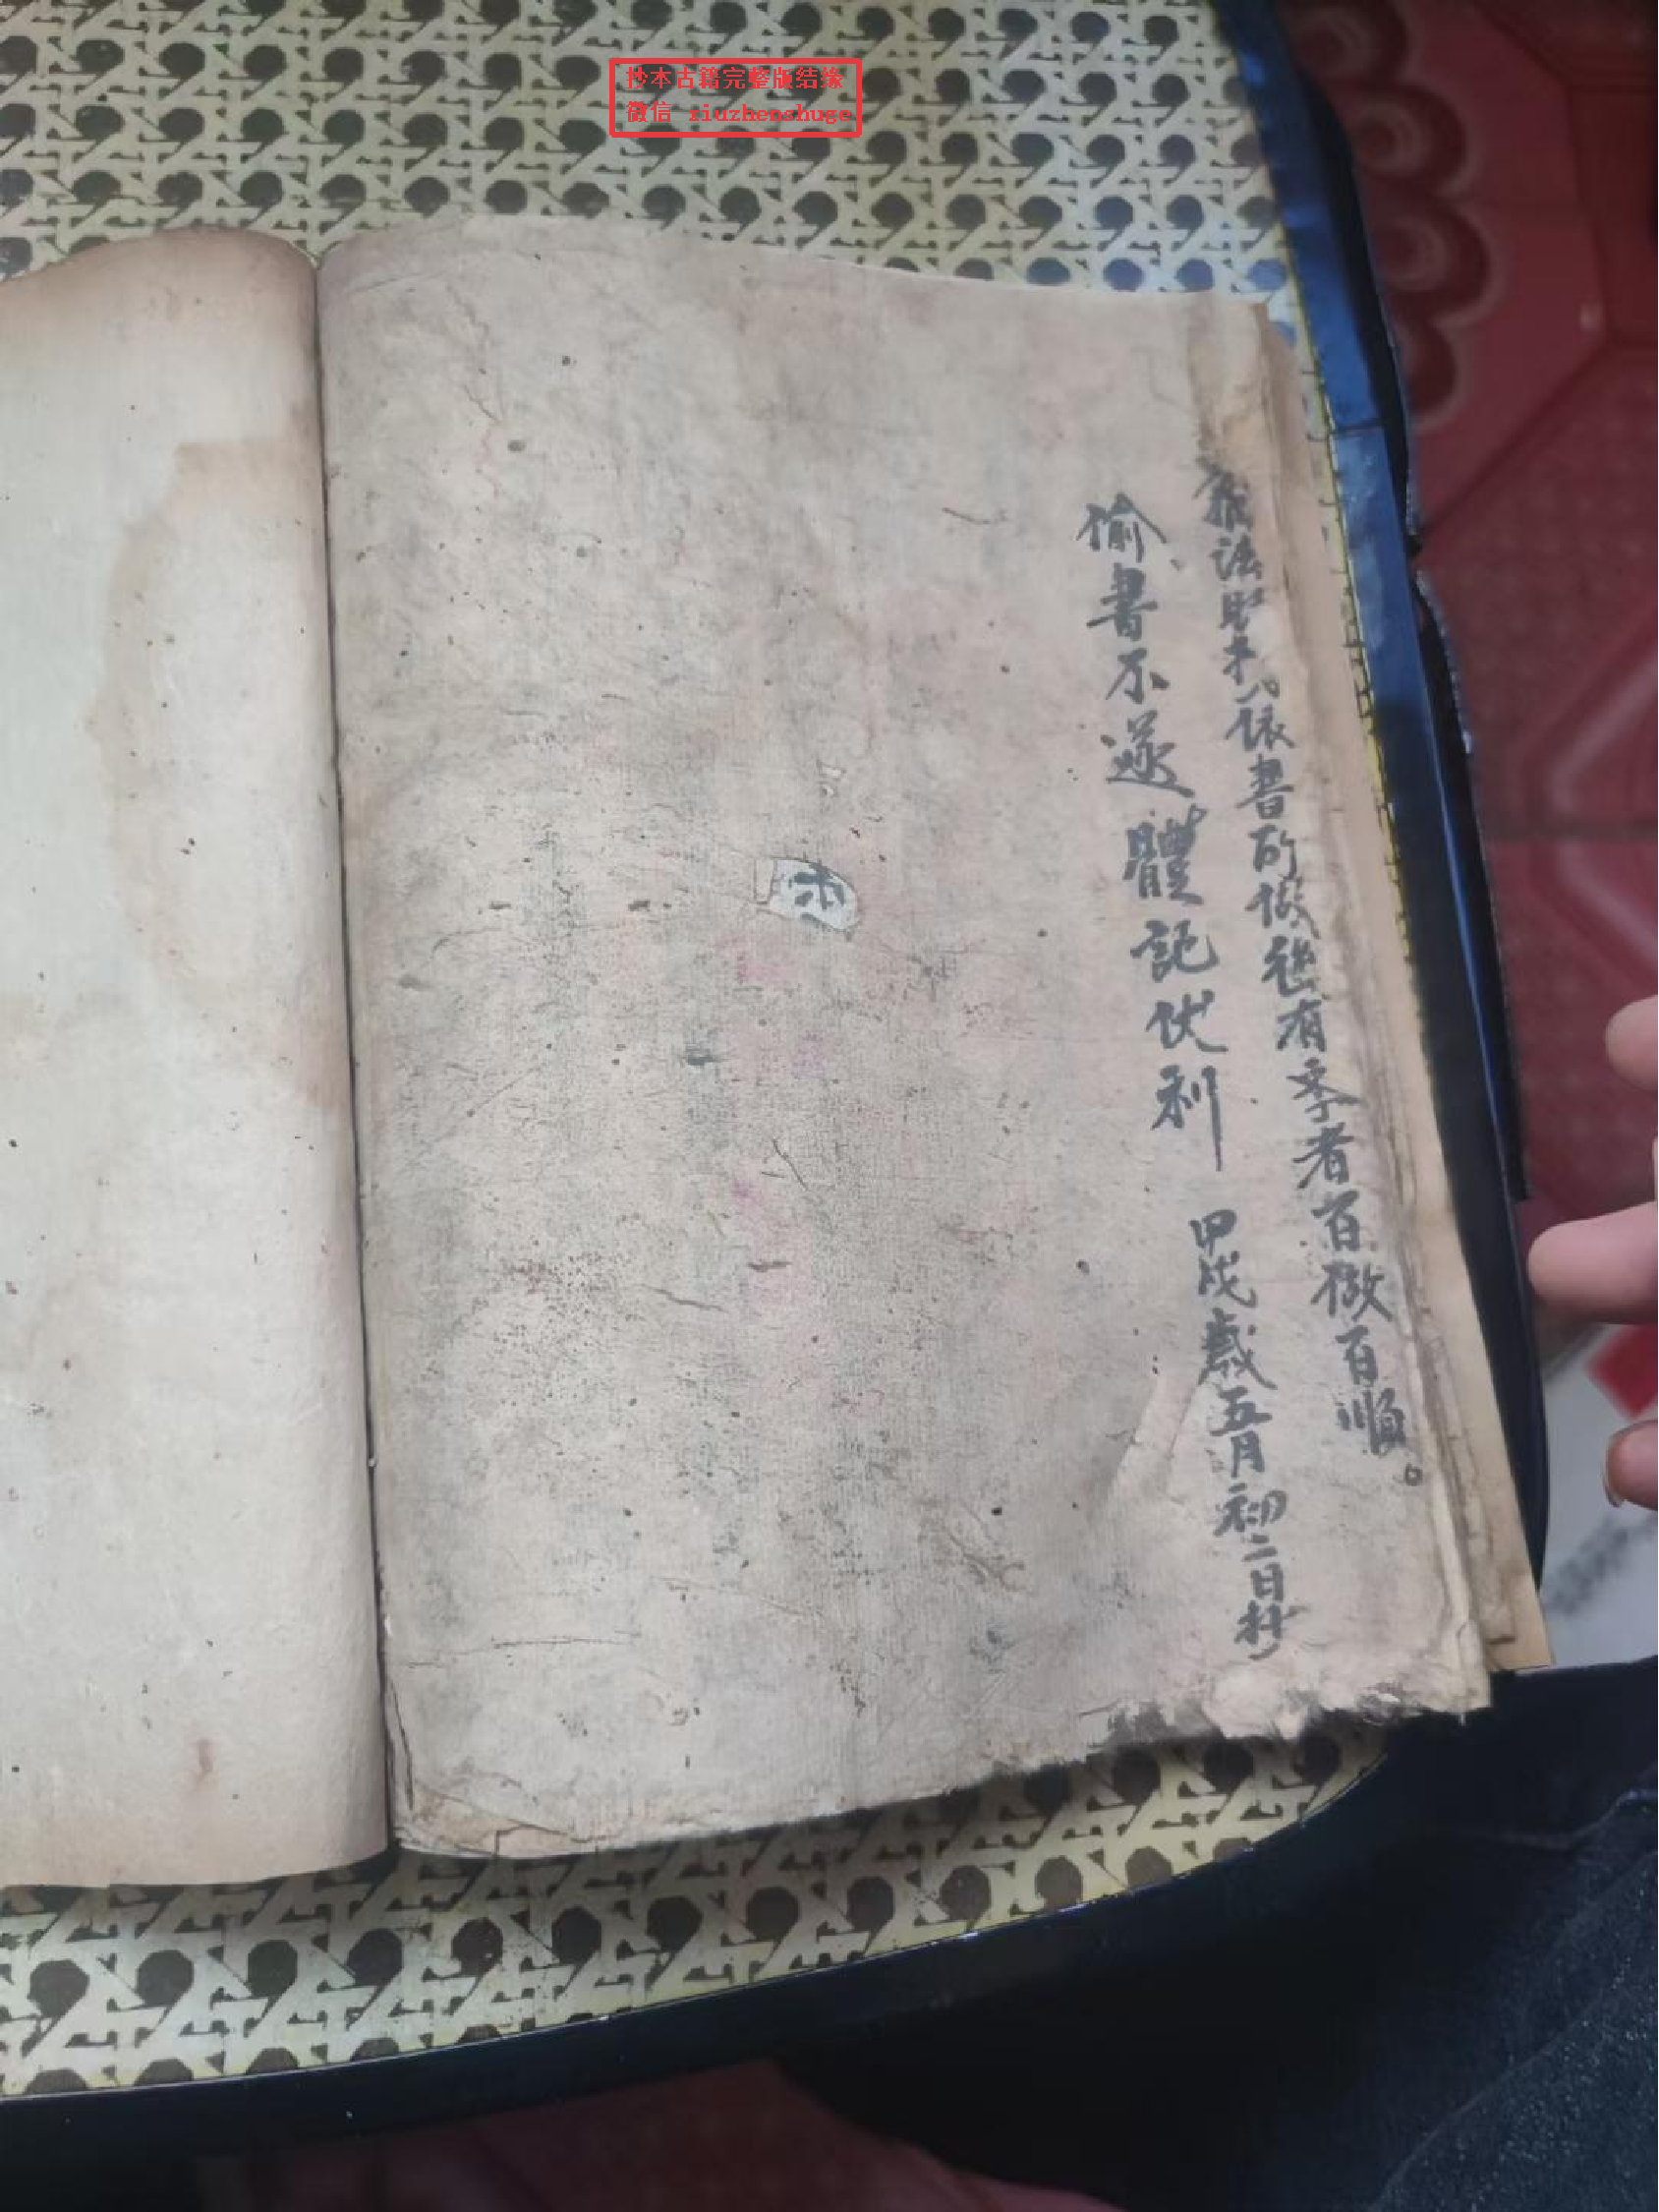 抄本古籍完整版结缘
微信 xiuzhenshuge
法 依書所做後有季者百做百順。
偷書不遂體記伏利 甲戌歲五月初二日抄